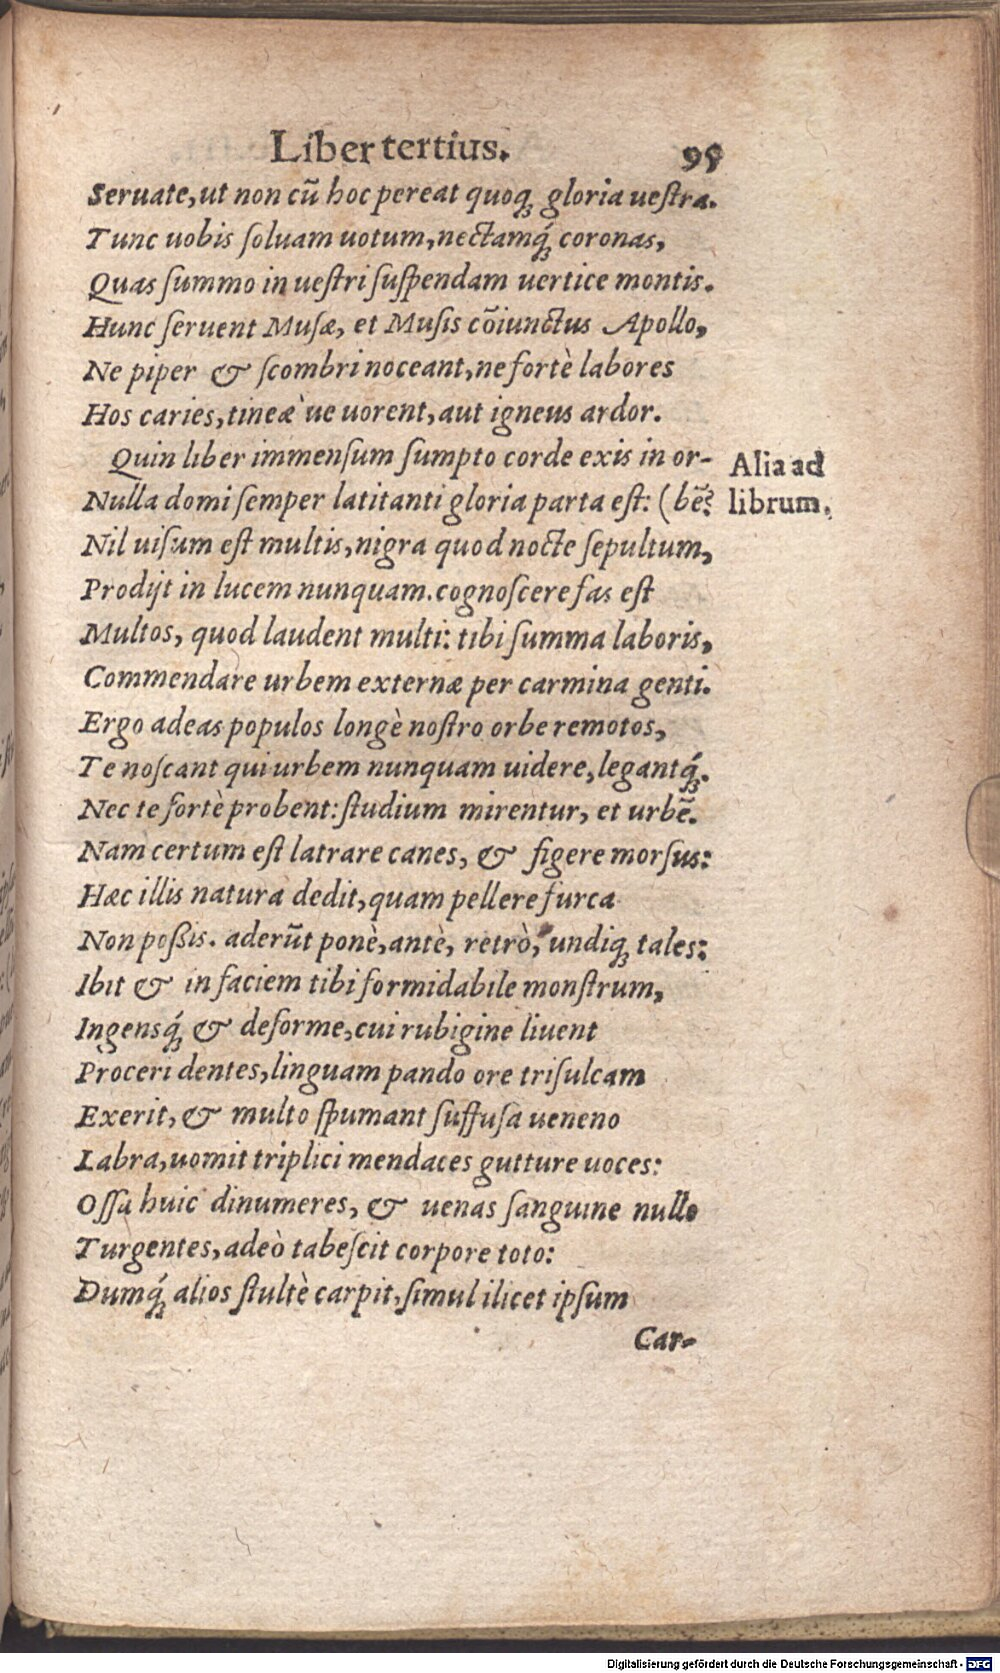 Liber tertius. 95
Seruate, ut non cū hoc pereat quoqꝫ gloria uestra.
Tunc uobis soluam uotum, nectamq́ꝫ coronas,
Quas summo in uestri suspendam uertice montis.
Hunc seruent Musæ, et Musis cōiunctus Apollo,
Ne piper & scombri noceant, ne fortè labores
Hos caries, tineæ`ue uorent, aut igneus ardor.
Quin liber immensum sumpto corde exis in or-
Nulla domi semper latitanti gloria parta est: (bē?
Alia ad
librum.
Nil uisum est multis, nigra quod nocte sepultum,
Prodijt in lucem nunquam. cognoscere fas est
Multos, quod laudent multi: tibi summa laboris,
Commendare urbem externæ per carmina genti.
Ergo adeas populos longè nostro orbe remotos,
Te noscant qui urbem nunquam uidere, legantq́ꝫ.
Nec te fortè probent: studium mirentur, et urbē.
Nam certum est latrare canes, & figere morsus:
Hæc illis natura dedit, quam pellere furca
Non poßis. aderūt ponè, antè, retrò, undiqꝫ tales:
Ibit & in faciem tibi formidabile monstrum,
Ingensq́ꝫ & deforme, cui rubigine liuent
Proceri dentes, linguam pando ore trisulcam
Exerit, & multo spumant suffusa ueneno
Labra, uomit triplici mendaces gutture uoces:
Ossa huic dinumeres, & uenas sanguine nullo
Turgentes, adeò tabescit corpore toto:
Dumq́ꝫ alios stultè carpit, simul ilicet ipsum
Car-
Digitalisierung gefördert durch die Deutsche Forschungsgemeinschaft - DFG